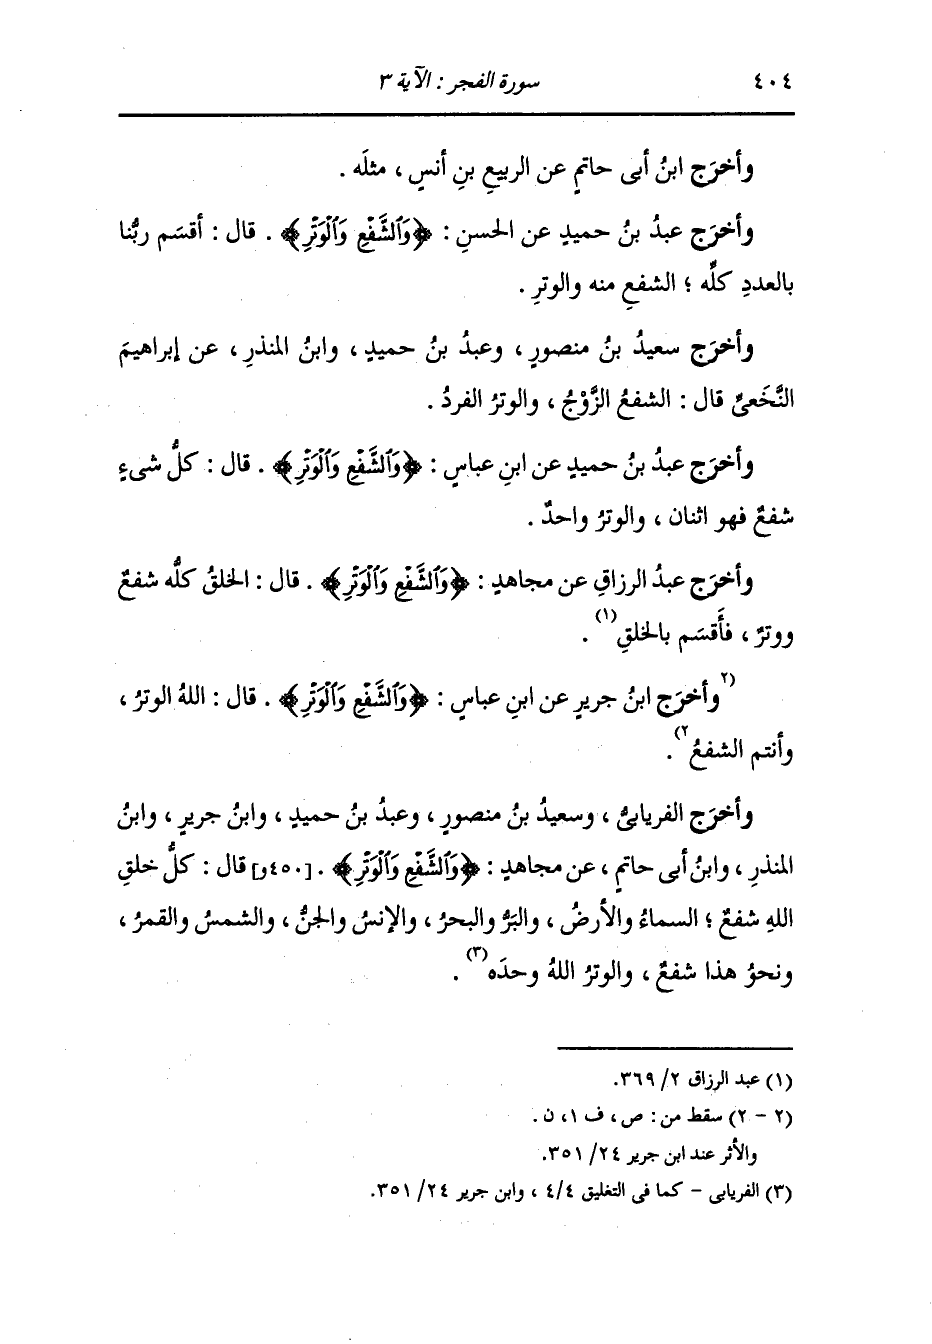 ٤٠٤ سورة الفجر : الآية ٣
وأخرَج ابنُ أبى حاتمٍ عن الربيعِ بنِ أنسٍ ، مثلَه .
وأخرَج عبدُ بنُ حميدٍ عن الحسنِ : ﴿وَٱلشَّفْعِ وَٱلْوَتْرِ﴾ . قال : أقسَم ربُّنا
بالعددِ كلِّه ؛ الشفعِ منه والوترِ .
وأخرَج سعيدُ بنُ منصورٍ ، وعبدُ بنُ حميدٍ ، وابنُ المنذرِ ، عن إبراهيمَ
النَّخَعىِّ قال : الشفعُ الزَّوْجُ ، والوترُ الفردُ .
وأخرَج عبدُ بنُ حميدٍ عن ابنِ عباسٍ : ﴿وَٱلشَّفْعِ وَٱلْوَتْرِ﴾ . قال : كلُّ شىءٍ
شفعٌ فهو اثنان ، والوترُ واحدٌ .
وأخرَج عبدُ الرزاقِ عن مجاهدٍ : ﴿وَٱلشَّفْعِ وَٱلْوَتْرِ﴾ . قال : الخلقُ كلُّه شفعٌ
ووترٌ ، فأَقسَم بالخلقِ(١) .
(٢وأخرَج ابنُ جريرٍ عن ابنِ عباسٍ : ﴿وَٱلشَّفْعِ وَٱلْوَتْرِ﴾ . قال : اللهُ الوترُ ،
وأنتم الشفعُ٢) .
وأخرَج الفريابىُّ ، وسعيدُ بنُ منصورٍ ، وعبدُ بنُ حميدٍ ، وابنُ جريرٍ ، وابنُ
المنذرِ ، وابنُ أبى حاتمٍ ، عن مجاهدٍ : ﴿وَٱلشَّفْعِ وَٱلْوَتْرِ﴾ . [٤٥٠و] قال : كلُّ خلقِ
اللهِ شفعٌ ؛ السماءُ والأرضُ ، والبَرُّ والبحرُ ، والإنسُ والجنُّ ، والشمسُ والقمرُ ،
ونحوُ هذا شفعٌ ، والوترُ اللهُ وحدَه(٣) .
(١) عبد الرزاق ٢/ ٣٦٩.
(٢ - ٢) سقط من : ص ، ف ١، ن .
والأثر عند ابن جرير ٢٤/ ٣٥١.
(٣) الفريابى - كما فى التغليق ٤/٤ ، وابن جرير ٢٤/ ٣٥١.